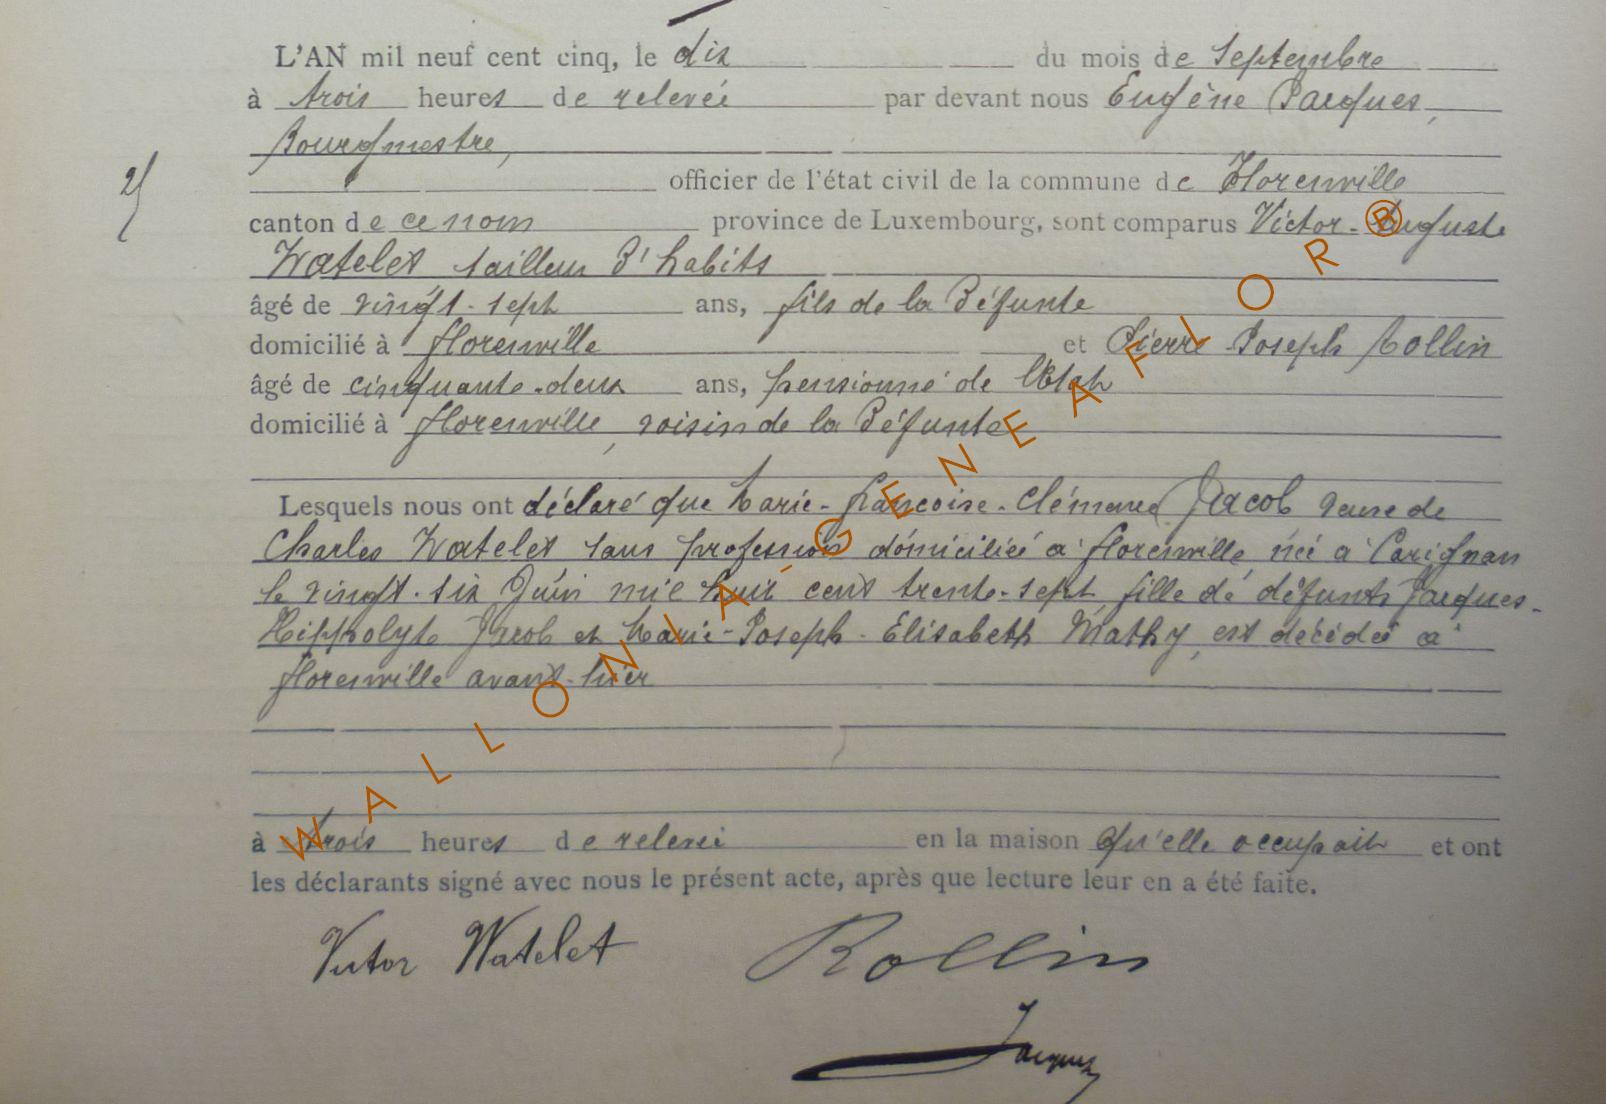 L'AN mil neuf cent cinq, le dix du mois de Septembre
à trois heures de relevée par devant nous Eugène Jacques,
Bourgmestre,
officier de l'état civil de la commune de Florenville
canton de ce nom province de Luxembourg, sont comparus Victor-Auguste
Watelet tailleur d'habits
âgé de vingt-sept ans, fils de la défunte
domicilié à Florenville et Pierre Joseph Rollin
âgé de cinquante-deux ans, pensionné de l'Etat
domicilié à Florenville, voisin de la défunte
Lesquels nous ont déclaré que Marie-Françoise-Clémence Jacob veuve de
Charles Watelet sans profession domiciliée à Florenville, née à Carignan
le vingt-six Juin mil huit cent trente-sept fille de défunts Jacques-
Hippolyte Jacob et Marie-Joseph-Elisabeth Mathy, est décédée à
Florenville avant-hier
à trois heures de relevée en la maison qu'elle occupait et ont
les déclarants signé avec nous le présent acte, après que lecture leur en a été faite.
Victor Watelet Rollin
Jacques
WALLONIA-GENEAFLOR®